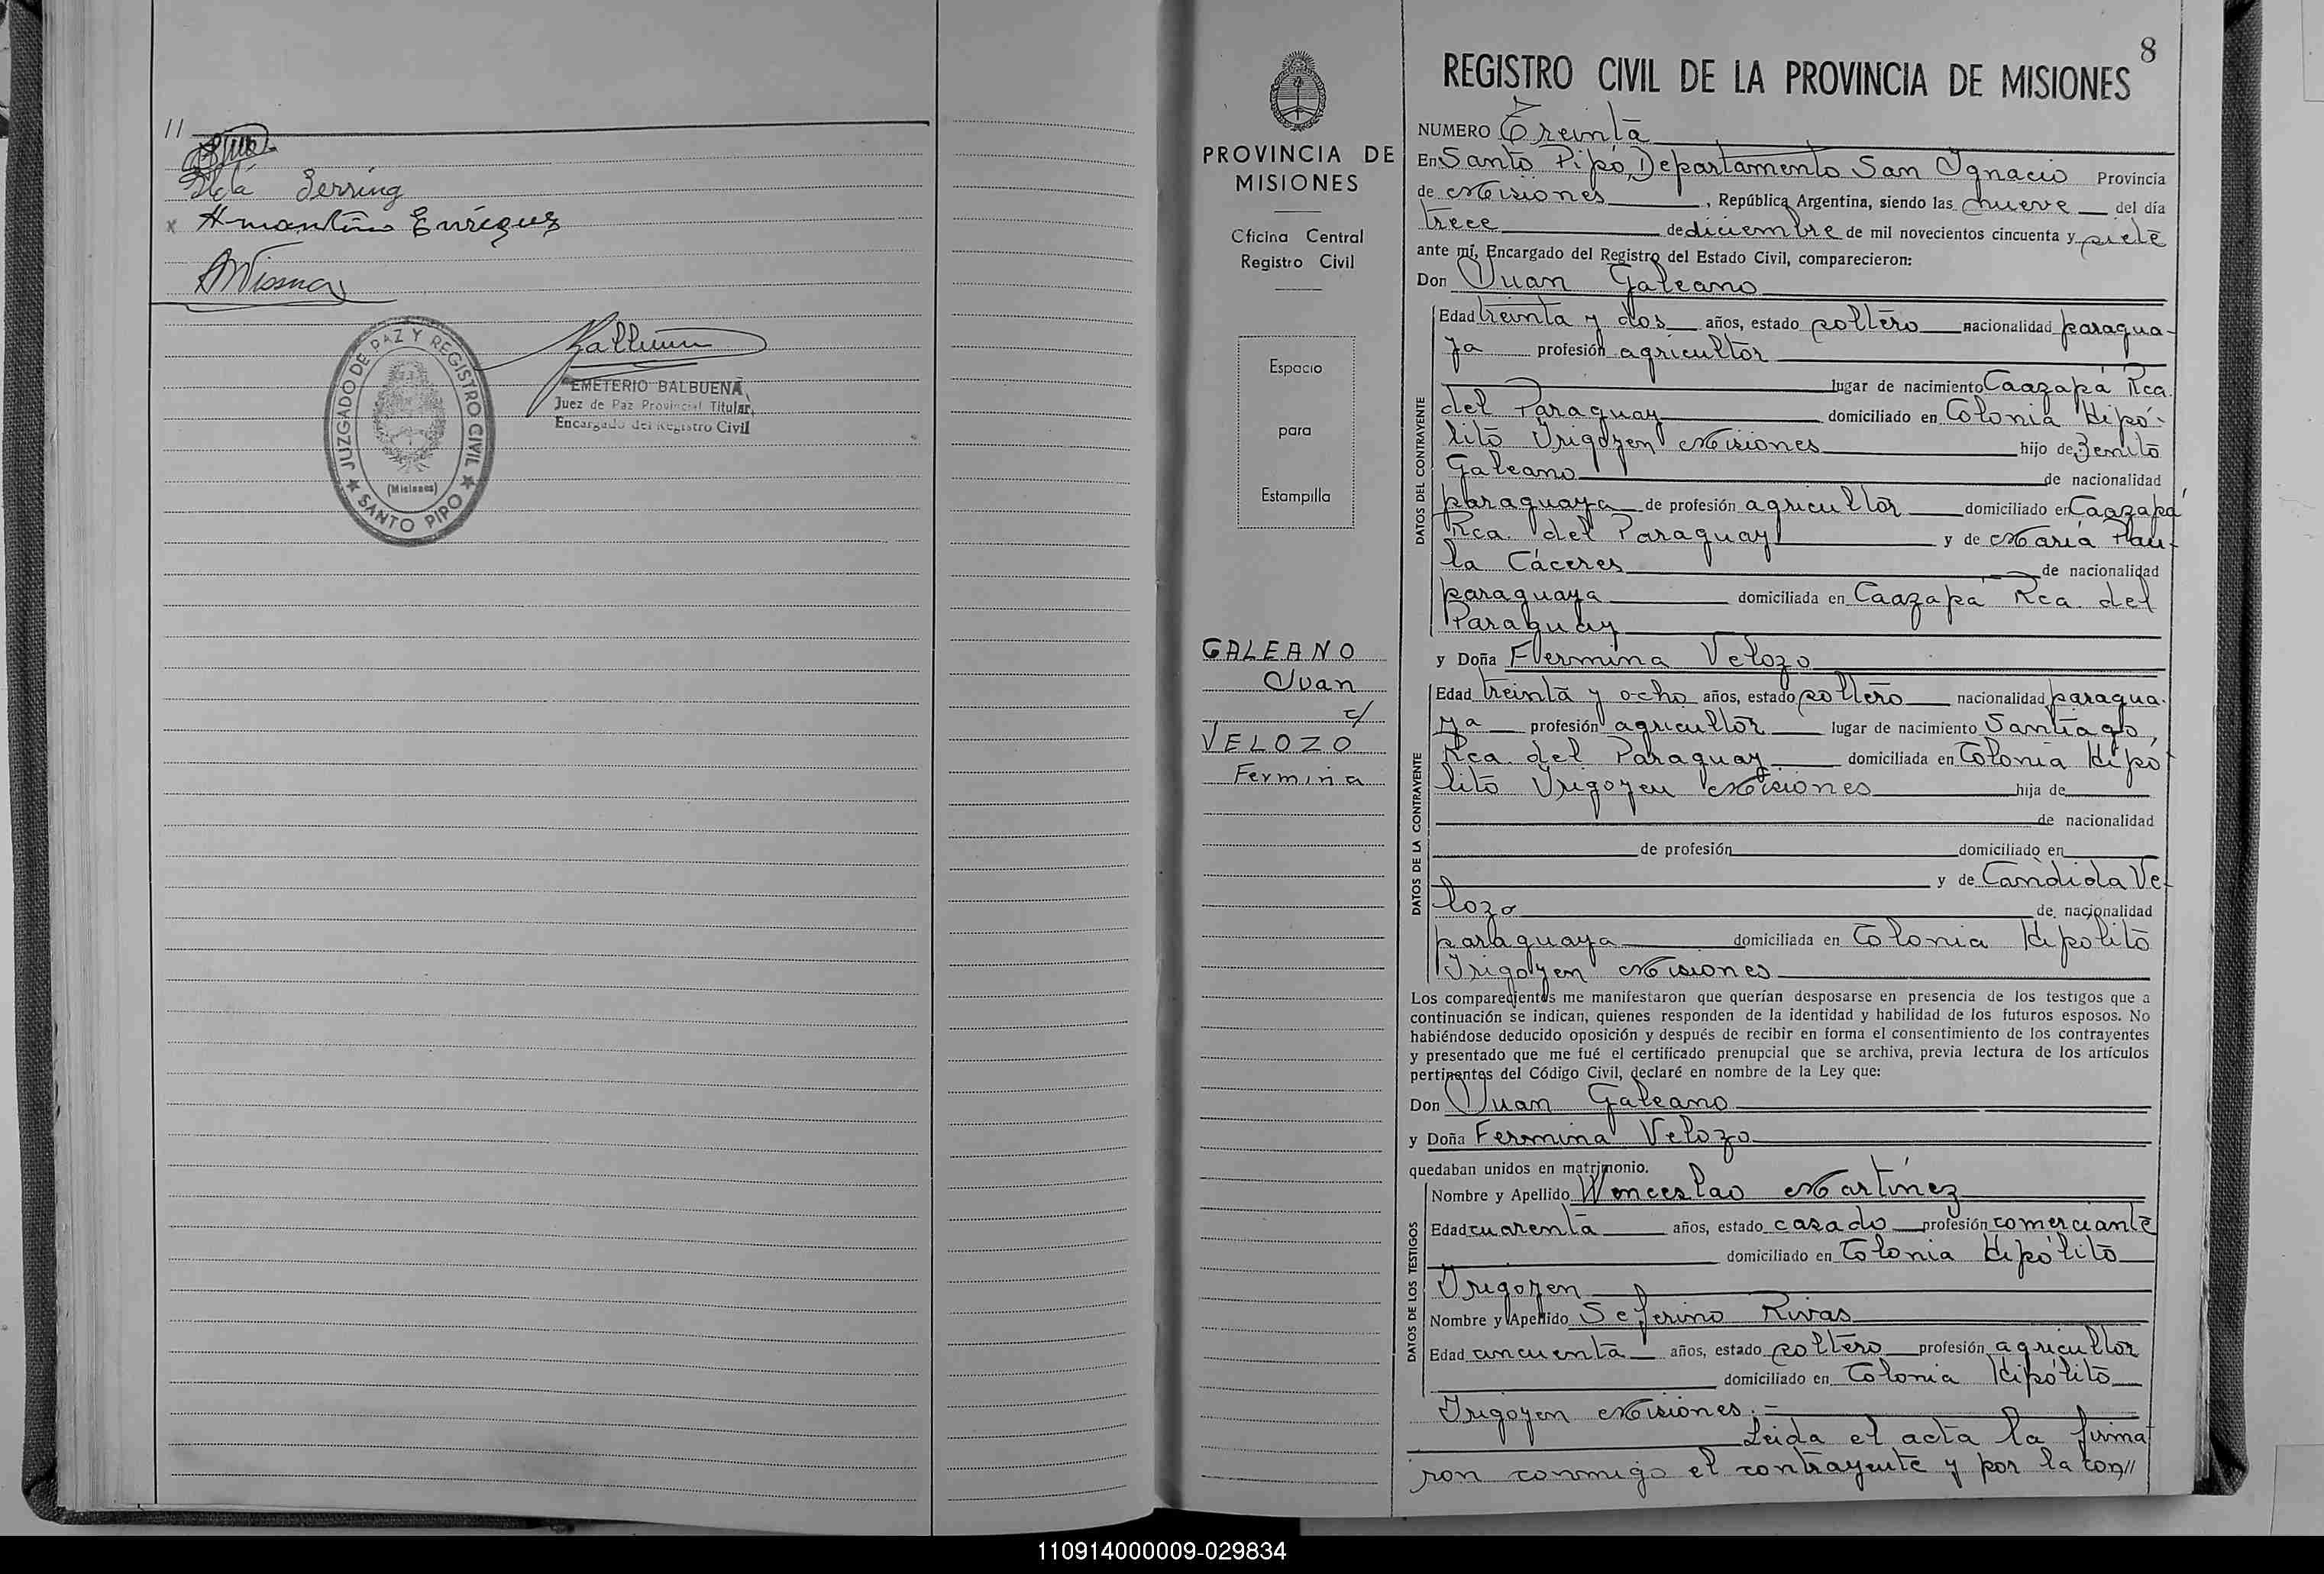 //
Ilda Gerring
x Amantino Enriquez
JUZGADO DE PAZ Y REGISTRO CIVIL
(Misiones)
★ SANTO PIPO ★
EMETERIO BALBUENA
Juez de Paz Provincial Titular
Encargado del Registro Civil
8
PROVINCIA DE
MISIONES
Oficina Central
Registro Civil
Espacio
para
Estampilla
GALEANO
Juan
c/
VELOZO
Fermina
REGISTRO CIVIL DE LA PROVINCIA DE MISIONES
NUMERO Treinta
En Santo Pipó, Departamento San Ignacio Provincia
de Misiones, República Argentina, siendo las nueve del día
trece de diciembre de mil novecientos cincuenta y siete
ante mí, Encargado del Registro del Estado Civil, comparecieron:
Don Juan Galeano
DATOS DEL CONTRAYENTE
Edad treinta y dos años, estado soltero nacionalidad paragua-
ya profesión agricultor
lugar de nacimiento Caazapá Rca.
del Paraguay domiciliado en Colonia Hipó-
lito Yrigoyen Misiones hijo de Benito
Galeano de nacionalidad
paraguaya de profesión agricultor domiciliado en Caazapá
Rca. del Paraguay y de María Pau-
la Cáceres de nacionalidad
paraguaya domiciliada en Caazapá Rca. del
Paraguay
y Doña Fermina Velozo
DATOS DE LA CONTRAYENTE
Edad treinta y ocho años, estado soltero nacionalidad paragua-
ya profesión agricultor lugar de nacimiento Santiago,
Rca. del Paraguay domiciliada en Colonia Hipó-
lito Yrigoyen Misiones hija de
de nacionalidad
de profesión domiciliado en
y de Cándida Ve-
lozo de nacionalidad
paraguaya domiciliada en Colonia Hipólito
Yrigoyen Misiones
Los comparecientes me manifestaron que querían desposarse en presencia de los testigos que a
continuación se indican, quienes responden de la identidad y habilidad de los futuros esposos. No
habiéndose deducido oposición y después de recibir en forma el consentimiento de los contrayentes
y presentado que me fué el certificado prenupcial que se archiva, previa lectura de los artículos
pertinentes del Código Civil, declaré en nombre de la Ley que:
Don Juan Galeano
y Doña Fermina Velozo
quedaban unidos en matrimonio.
DATOS DE LOS TESTIGOS
Nombre y Apellido Wenceslao Martínez
Edad cuarenta años, estado casado profesión comerciante
domiciliado en Colonia Hipólito
Yrigoyen
Nombre y Apellido Seferino Rivas
Edad cincuenta años, estado soltero profesión agricultor
domiciliado en Colonia Hipólito
Yrigoyen Misiones.-
Leida el acta la firma-
ron conmigo el contrayente y por la con//
110914000009-029834